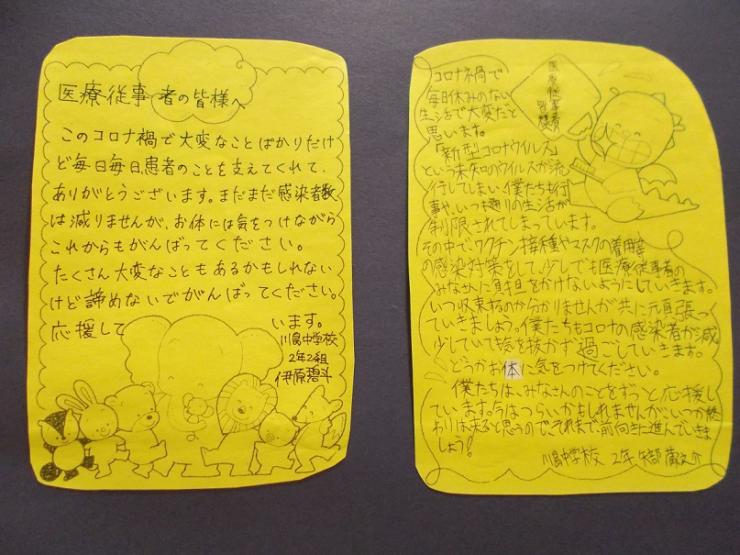 医療従事者の皆様へ
このコロナ禍で大変なことばかりだけ
ど毎日毎日患者のことを支えてくれて、
ありがとうございます。まだまだ感染者数
は減りませんが、お体には気をつけながら
これからもがんばってください。
たくさん大変なこともあるかもしれない
けど諦めないでがんばってください。
応援して います。
川島中学校
2年2組
伊原碧斗
医療従事者
皆様
コロナ禍で
毎日休みのない
生活で大変だと
思います。
「新型コロナウイルス」
という未知のウイルスが流
行してしまい、僕たちも行
事や、いつも通りの生活が
制限されてしまっています。
その中で、ワクチン接種やマスクの着用等
の感染対策をして、少しでも医療従事者の
みなさんに負担をかけないようにしていきます。
いつ収束するのか分かりませんが共に頑張っ
ていきましょう。僕たちもコロナの感染者が減
少していても気を抜かず過ごしていきます。
どうかお体に気をつけてください。
僕たちは、みなさんのことをずっと応援し
ています。今はつらいかもしれませんが、いつか終
わりは来ると思うのでそれまで前向きに進んでいきま
しょう!
川島中学校 2年 矢部